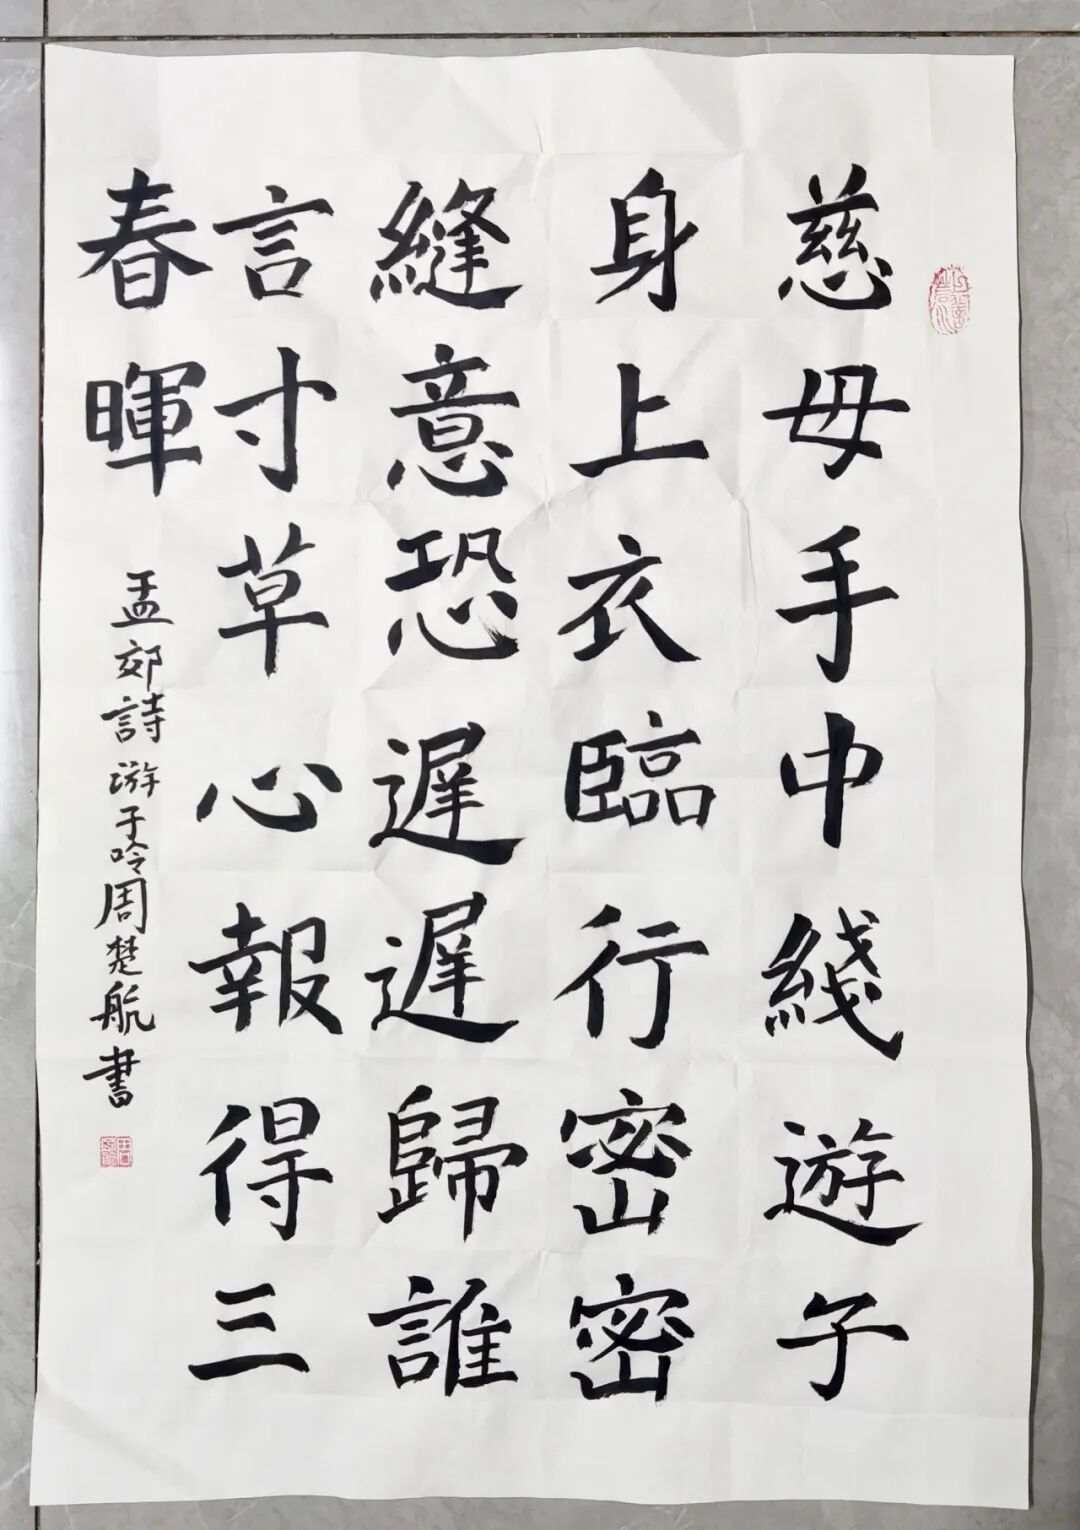 慈母手中綫遊子
身上衣臨行密密
縫意恐遲遲歸誰
言寸草心報得三
春暉
孟郊詩游子吟周楚航書